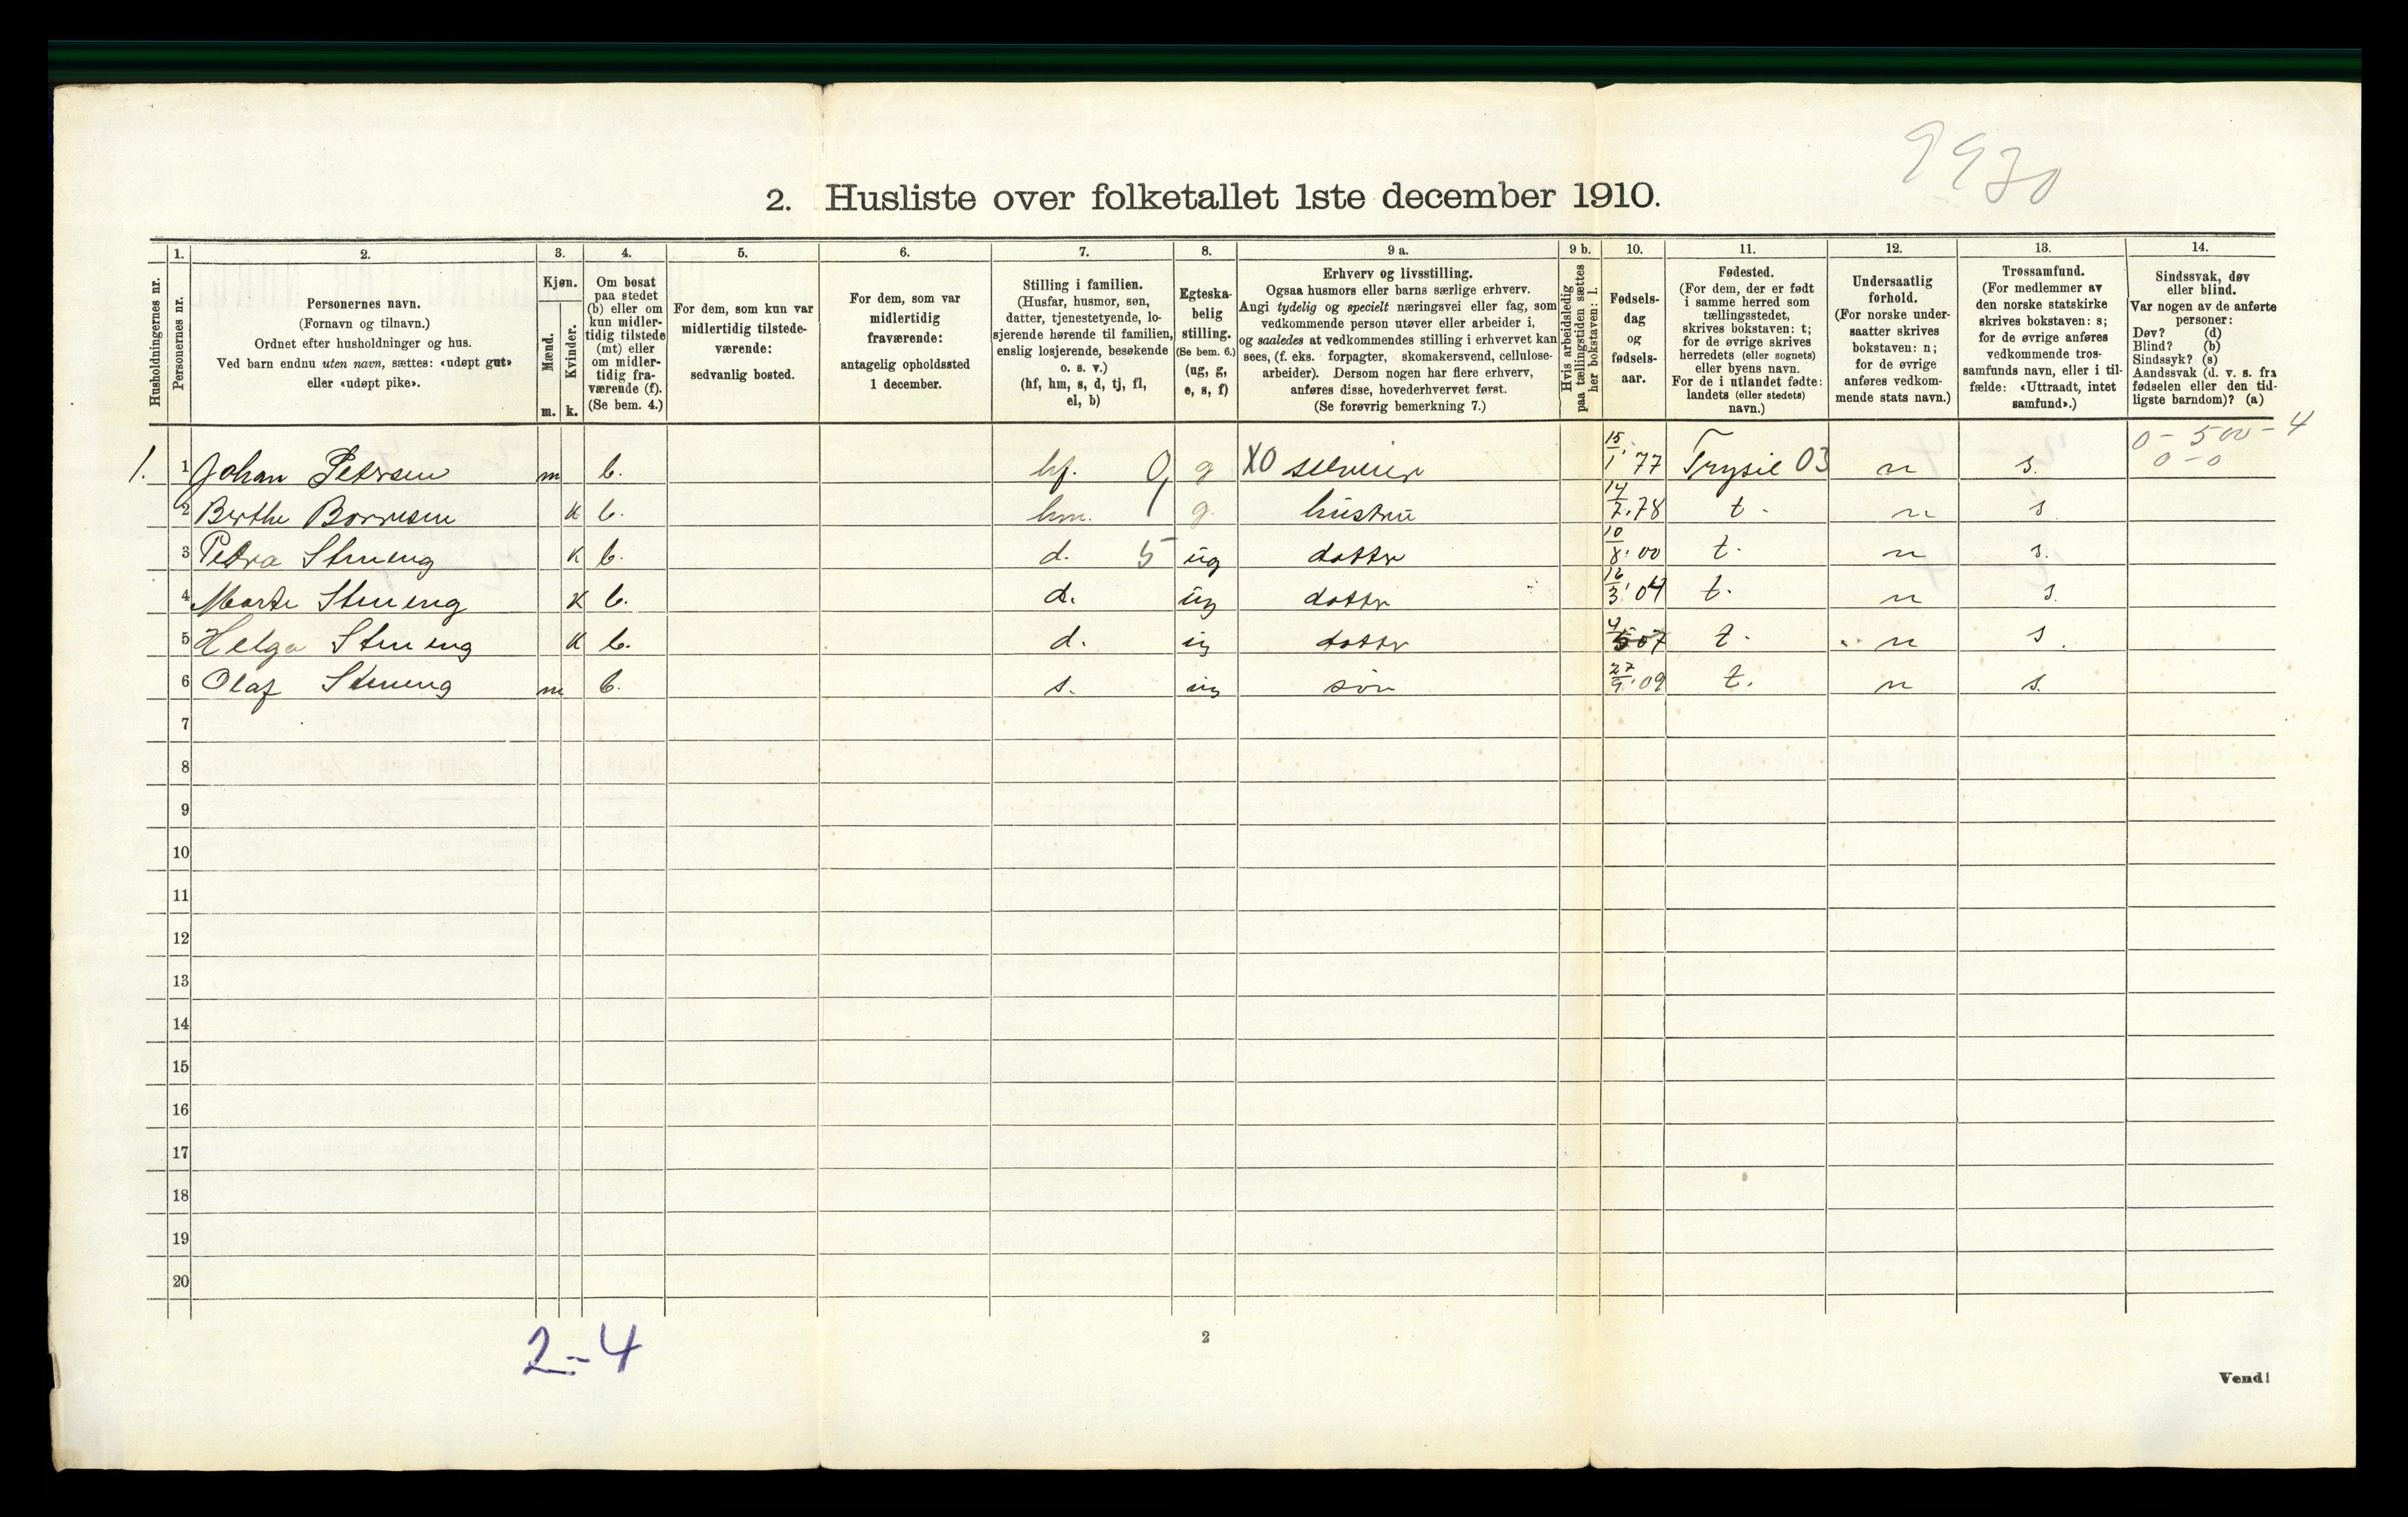 9930
2. Husliste over folketallet 1ste december 1910.
Husholdningernes nr.
1.
Personernes nr.
2.
Personernes navn.
(Fornavn og tilnavn.)
Ordnet efter husholdninger og hus.
Ved barn endnu uten navn, sættes: «udøpt gut»
eller «udøpt pike».
3.
Kjøn.
Mænd.
Kvinder.
m. k.
4.
Om bosat
paa stedet
(b) eller om
kun midler-
tidig tilstede
(mt) eller
om midler-
tidig fra-
værende (f).
(Se bem. 4.)
5.
For dem, som kun var
midlertidig tilstede-
værende:
sedvanlig bosted.
6.
For dem, som var
midlertidig
fraværende:
antagelig opholdssted
1 december.
7.
Stilling i familien.
(Husfar, husmor, søn,
datter, tjenestetyende, lo-
sjerende hørende til familien,
enslig losjerende, besøkende
o. s. v.)
(hf, hm, s, d, tj, fl,
el, b)
8.
Egteska-
belig
stilling.
(Se bem. 6.)
(ug, g,
e, s, f)
9 a.
Erhverv og livsstilling.
Ogsaa husmors eller barns særlige erhverv.
Angi tydelig og specielt næringsvei eller fag, som
vedkommende person utøver eller arbeider i,
og saaledes at vedkommendes stilling i erhvervet kan
sees, (f. eks. forpagter, skomakersvend, cellulose-
arbeider). Dersom nogen har flere erhverv,
anføres disse, hovederhvervet først.
(Se forøvrig bemerkning 7.)
9 b.
Hvis arbeidsledig
paa tællingstiden sættes
her bokstaven: l.
10.
Fødsels-
dag
og
fødsels-
aar.
11.
Fødested.
(For dem, der er født
i samme herred som
tællingsstedet,
skrives bokstaven: t;
for de øvrige skrives
herredets (eller sognets)
eller byens navn.
For de i utlandet fødte:
landets (eller stedets)
navn.)
12.
Undersaatlig
forhold.
(For norske under-
saatter skrives
bokstaven: n;
for de øvrige
anføres vedkom-
mende stats navn.)
13.
Trossamfund.
(For medlemmer av
den norske statskirke
skrives bokstaven: s;
for de øvrige anføres
vedkommende tros-
samfunds navn, eller i til-
fælde: «Uttraadt, intet
samfund».)
14.
Sindssvak, døv
eller blind.
Var nogen av de anførte
personer:
Døv? (d)
Blind? (b)
Sindssyk? (s)
Aandssvak (d. v. s. fra
fødselen eller den tid-
ligste barndom)? (a)
0 - 500 - 4
0 - 0
1. 1 Johan Petersen m b. hf. g XO selveier 15/1 77 Trysil 03 n s.
2 Berthe Borresen k b. hm. g. hustru 14/7.78 t. n s
3 Petra Steneng k b. d. 5 ug datter 10/8.00 t. n s.
4 Marte Steneng k b. d. ug datter 16/3.04 t. n s.
5 Helga Steneng k b. d. ug datter 4/5 07 t. n s.
6 Olaf Steneng m b. s. ug søn 27/9.09 t. n s.
7
8
9
10
11
12
13
14
15
16
17
18
19
20
2-4
2
Vend!